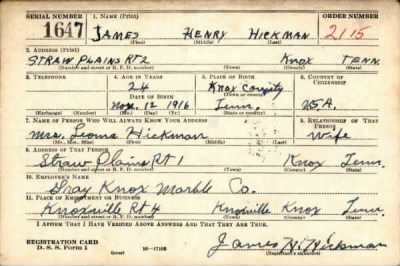 SERIAL NUMBER 1. NAME (Print) ORDER NUMBER
1647 JAMES HENRY HICKMAN 2115
(First) (Middle) (Last)
2. ADDRESS (Print)
STRAW PLAINS RT2 KNOX TENN.
(Number and street or R. F. D. number) (Town) (County) (State)
3. TELEPHONE 4. AGE IN YEARS 5. PLACE OF BIRTH 6. COUNTRY OF CITIZENSHIP
24 Knox County
DATE OF BIRTH (Town or county)
Nov. 12 1916 Tenn. U.S.A.
(Exchange) (Number) (Mo.) (Day) (Yr.) (State or country)
7. NAME OF PERSON WHO WILL ALWAYS KNOW YOUR ADDRESS 8. RELATIONSHIP OF THAT PERSON
Mrs. Leona Hickman Wife
(Mr., Mrs., Miss) (First) (Middle) (Last)
9. ADDRESS OF THAT PERSON
Straw Plains Rt 1 Knox Tenn.
(Number and street or R. F. D. number) (Town) (County) (State)
10. EMPLOYER'S NAME
Gray Knox Marble Co.
11. PLACE OF EMPLOYMENT OR BUSINESS
Knoxville Rt 4 Knoxville Knox Tenn.
(Number and street or R. F. D. number) (Town) (County) (State)
I AFFIRM THAT I HAVE VERIFIED ABOVE ANSWERS AND THAT THEY ARE TRUE.
REGISTRATION CARD
D. S. S. Form 1 (over) 16—17105 James H. Hickman
(Registrant's signature)